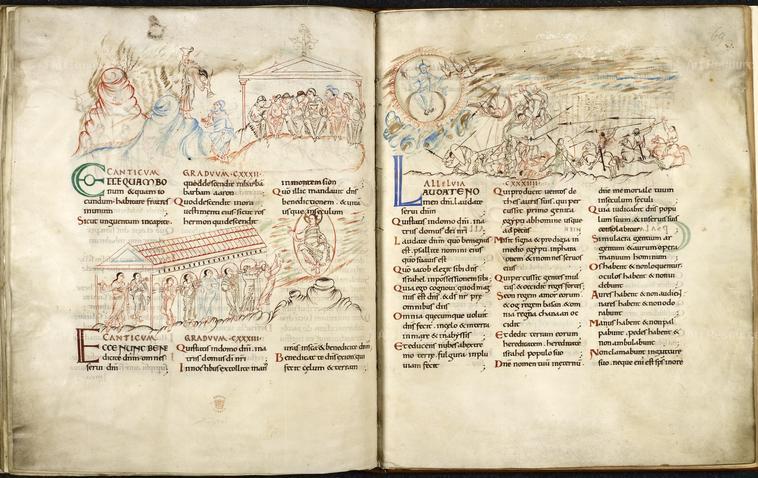 CANTICUM GRADUUM·CXXXII·
ECCE QUAM BO
num & quam io
cundum habitare fratres
in unum
Sicut unguentum incapite
quod descendit in barbā
barbam aaron
Quod descendit in ora
uestimenti eius sicut ros
hermon qui descendit
in montem sion
Quo illic mandauit dns
benedictionem & uita
usque in seculum
CANTICUM GRADUUM·CXXXIII·
ECCE NUNC BENE
dicite dnm omnes
serui dni
Qui statis in domo dni in a
triis domus di nri
In noctibus extollite man
unus in scā & benedicite dnm
Benedicat te dns ex sion qui
fecit celum & terram
ALLELUIA CXXXIIII
LAUDATE NO
men dni laudate
serui dnm
Qui statis in domo dni in a
triis domus di nri
Laudate dnm quo benignus
est psallite nomini eius
quo suaue est
Quo iacob elegit sibi dns
israhel in possessionem sibi
Quia ego cognoui quod mag
nus est dns & ds nr pre
omnibus diis
Omnia quecumque uoluit
dns fecit in celo & in terra
in mare & in abyssis
Et educens nubes ab extre
mo terre fulgura in plu
uiam fecit
Qui producit uentos de
thesauris suis qui per
cussit primogenita
egypti ab homine usque
ad pecus
Misit signa & prodigia in
medio egypti in phara
onem & in omnes seruos
eius
Qui percussit gentes mul
tas & occidit reges fortes
Seon regem amorreorum
& og regem basan & om
nia regna chanaan oc
cidit
Et dedit terram eorum
hereditatem hereditatē
israhel populo suo
Dne nomen tuum in eternū
dne memoriale tuum
in seculum seculi
Quia iudicabit dns popu
lum suum & in seruis suis
consolabitur
Simulacra gentium ar
gentum & aurum opera
manuum hominum
Os habent & non loquentur
oculos habent & non ui
debunt
Aures habent & non audient
nares habent & non odo
rabunt
Manus habent & non pal
pabunt pedes habent &
non ambulabunt
Non clamabunt in gutture
suo neque eni est sps in ore